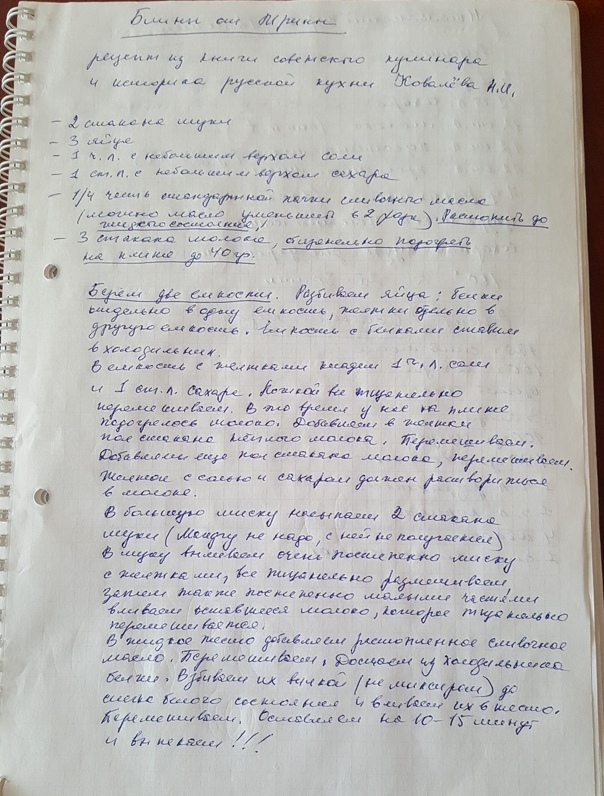 Блины от Ирины
рецепт из книги советского кулинара
и историка русской кухни Ковалёва Н.И.
– 2 стакана муки
– 3 яйца
– 1 ч.л. с небольшим верхом соли
– 1 ст.л. с небольшим верхом сахара
– 1/4 часть стандартной пачки сливочного масла
(можно масло уменьшить в 2 раза). Растопить до
жидкого состояния!
– 3 стакана молока, обязательно подогреть
на плите до 40 гр.
Берем две емкости. Разбиваем яйца: белки
отдельно в одну емкость, желтки отдельно в
другую емкость. Емкость с белками ставим
в холодильник.
В емкость с желтками кладем 1 ч.л. соли
и 1 ст.л. сахара. Ложкой все тщательно
перемешиваем. В это время у нас на плите
подогрелось молоко. Добавляем в желтки
пол стакана тёплого молока. Перемешиваем.
Добавляем еще пол стакана молока, перемешиваем.
Желток с солью и сахаром должен раствориться
в молоке.
В большую миску насыпаем 2 стакана
муки (Манку не надо, с ней не получается)
В муку выливаем очень постепенно миску
с желтками, все тщательно размешиваем,
затем также постепенно малыми частями
вливаем оставшееся молоко, которое тщательно
перемешивается.
В жидкое тесто добавляем растопленное сливочное
масло. Перемешиваем. Достаем из холодильника
белки. Взбиваем их вилкой (не миксером) до
белого состояния и вливаем их в тесто.
Перемешиваем. Оставляем на 10–15 минут
и выпекаем!!!